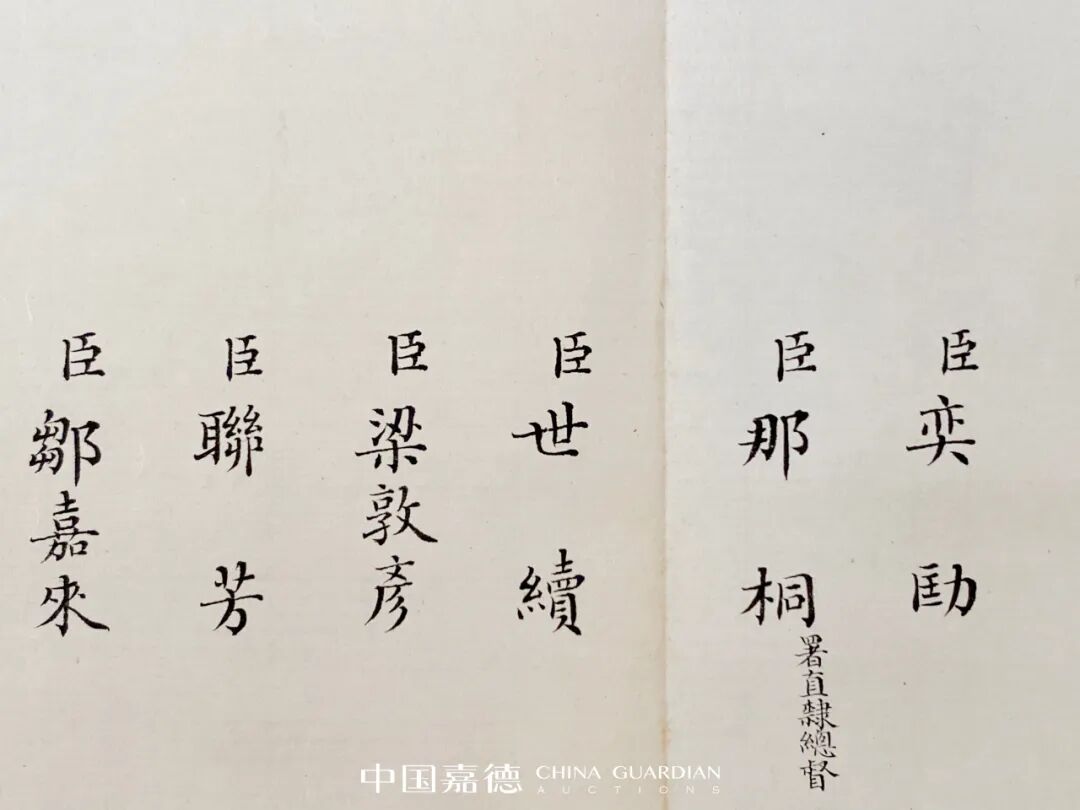 臣奕劻
臣那桐署直隸總督
臣世續
臣梁敦彥
臣聯芳
臣鄒嘉來
中国嘉德 CHINA GUARDIAN
AUCTIONS